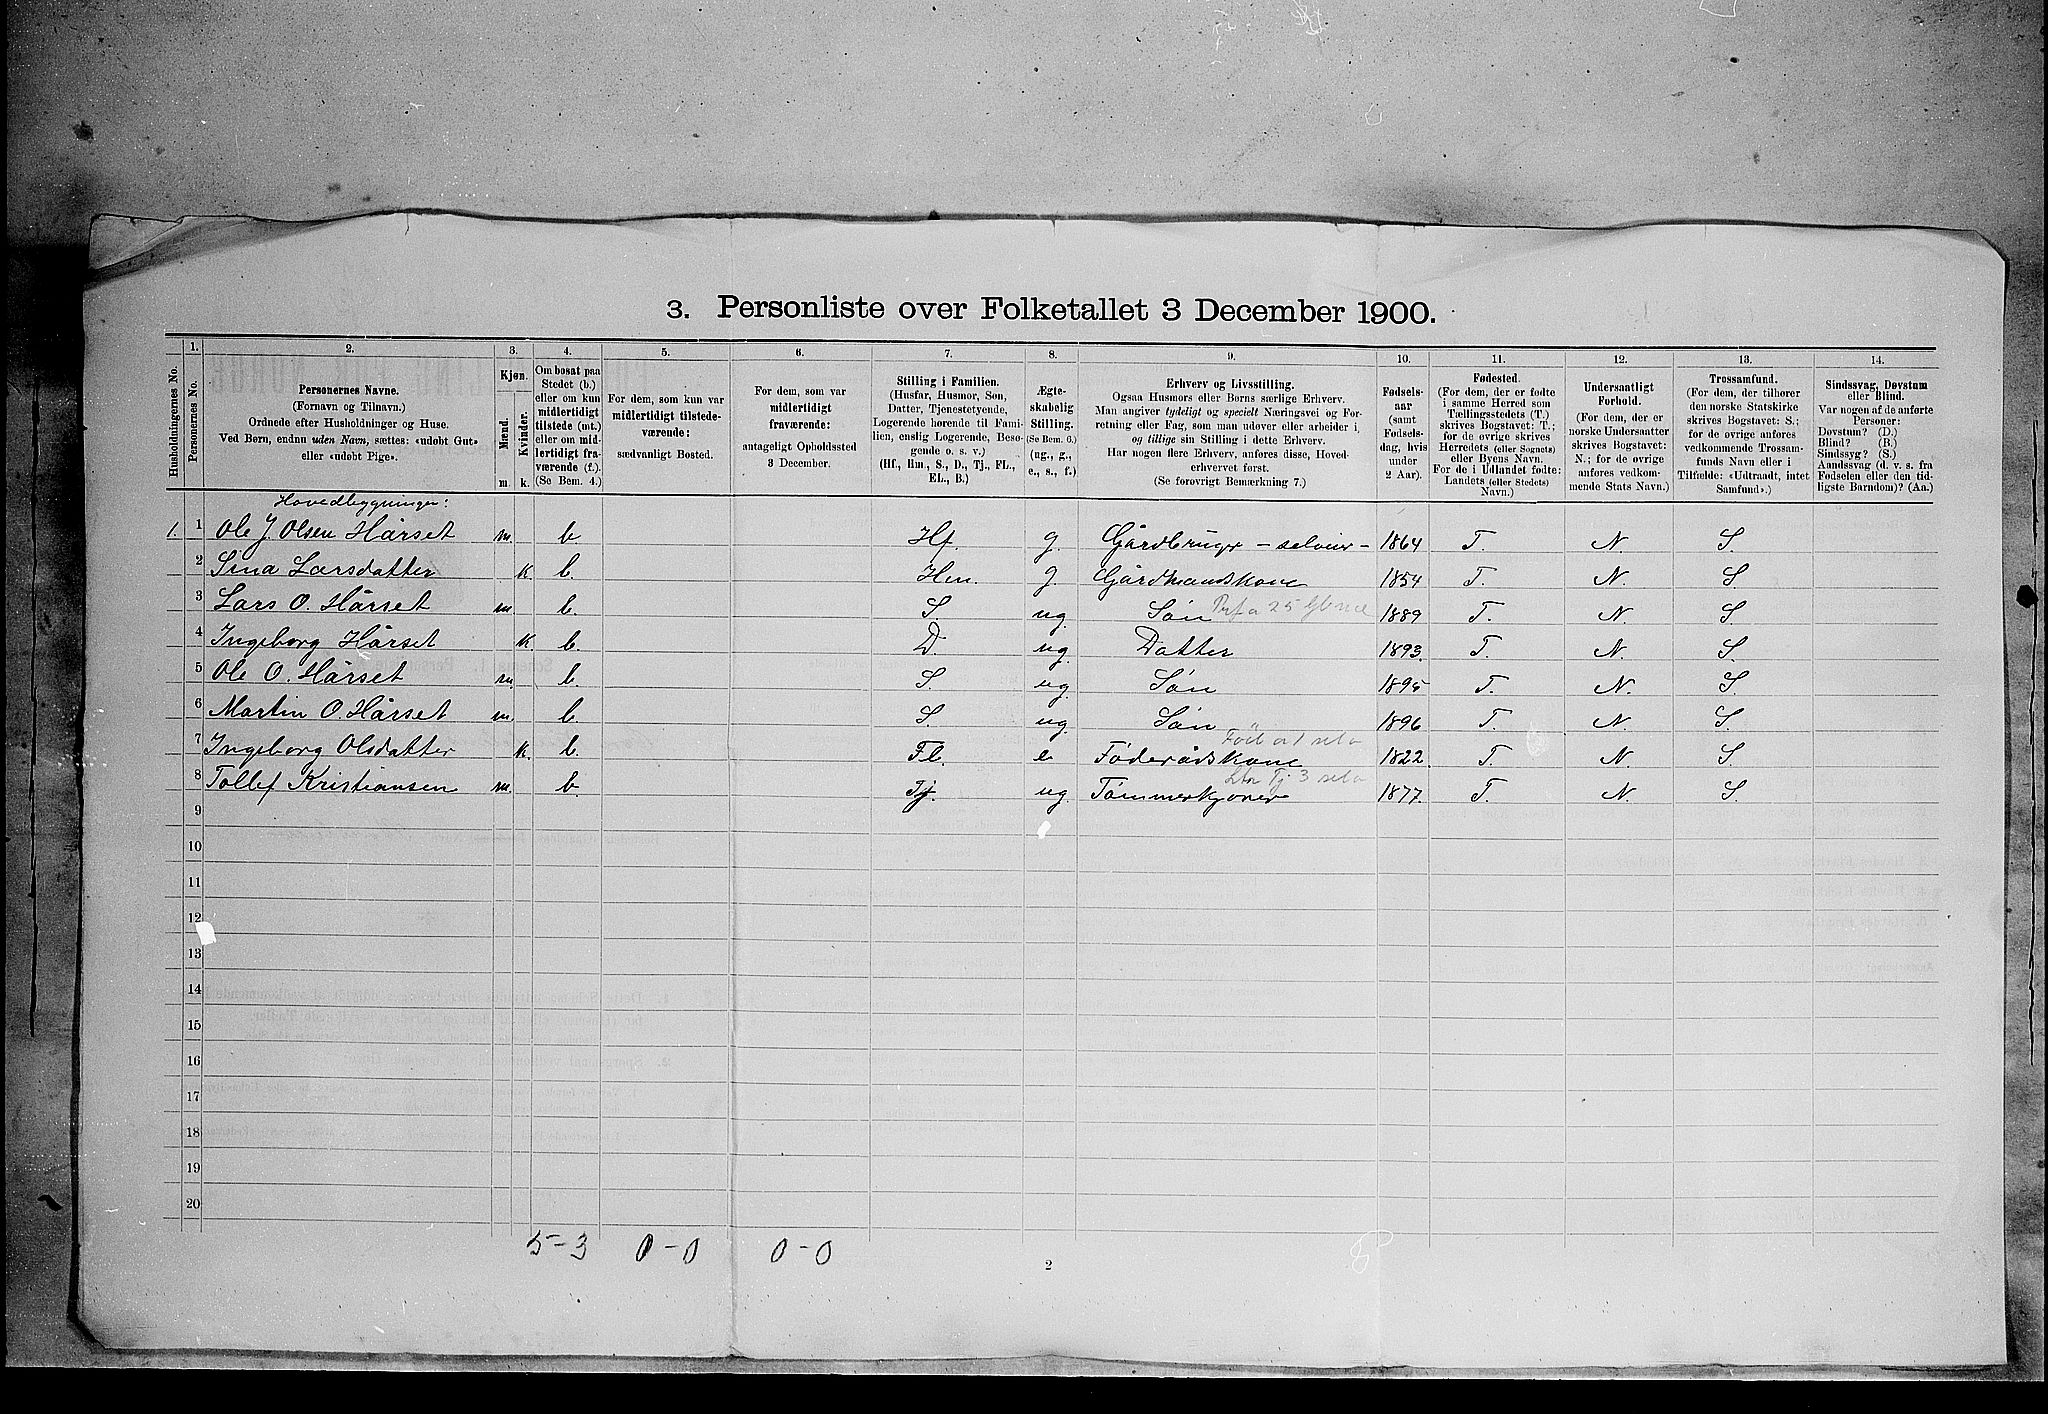 3. Personliste over Folketallet 3 December 1900.
Husholdningernes No.
1.
Personernes No.
2.
Personernes Navne.
(Fornavn og Tilnavn.)
Ordnede efter Husholdninger og Huse.
Ved Børn, endnu uden Navn, sættes: «udøbt Gut»
eller «udøbt Pige».
3.
Kjøn.
Mænd.
Kvinder.
m. k.
4.
Om bosat paa
Stedet (b.)
eller om kun
midlertidigt
tilstede (mt.)
eller om mid-
lertidigt fra-
værende (f.).
(Se Bem. 4.)
5.
For dem, som kun var
midlertidigt tilstede-
værende:
sædvanligt Bosted.
6.
For dem, som var
midlertidigt
fraværende:
antageligt Opholdssted
3 December.
7.
Stilling i Familien.
(Husfar, Husmor, Søn,
Datter, Tjenestetyende,
Logerende hørende til Fami-
lien, enslig Logerende, Besø-
gende o. s. v.)
(Hf., Hm., S., D., Tj., FL.,
EL., B.)
8.
Ægte-
skabelig
Stilling.
(Se Bem. 6.)
(ug., g.,
e., s., f.)
9.
Erhverv og Livsstilling.
Ogsaa Husmors eller Børns særlige Erhverv.
Man angiver tydeligt og specielt Næringsvei og For-
retning eller Fag, som man udøver eller arbeider i,
og tillige sin Stilling i dette Erhverv.
Har nogen flere Erhverv, anføres disse, Hoved-
erhvervet først.
(Se forøvrigt Bemærkning 7.)
10.
Fødsels-
aar
(samt
Fødsels-
dag, hvis
under
2 Aar).
11.
Fødested.
(For dem, der er fødte
i samme Herred som
Tællingsstedets (T.)
skrives Bogstavet: T.;
for de øvrige skrives
Herredets (eller Sognets)
eller Byens Navn.
For de i Udlandet fødte:
Landets (eller Stedets)
Navn.)
12.
Undersaatligt
Forhold.
(For dem, der er
norske Undersaatter
skrives Bogstavet:
N.; for de øvrige
anføres vedkom-
mende Stats Navn.)
13.
Trossamfund.
(For dem, der tilhører
den norske Statskirke
skrives Bogstavet: S.;
for de øvrige anføres
vedkommende Trossam-
funds Navn eller i
Tilfælde: «Udtraadt, intet
Samfund».)
14.
Sindssvag, Døvstum
eller Blind.
Var nogen af de anførte
Personer:
Døvstum? (D.)
Blind? (B.)
Sindssyg? (S.)
Aandssvag (d. v. s. fra
Fødselen eller den tid-
ligste Barndom)? (Aa.)
Hovedbygningen:
1. 1 Ole J. Olsen Hårset m. b. Hf. g. Gårdbruger – selveier – 1864 T. N. S.
2 Sina Larsdatter k b. Hm. g. Gårdmandskone 1854 T. N. S
3 Lars O. Hårset m. b. S. ug. Søn 1889 T. N. S.
4 Ingeborg Hårset k b. D. ug. Datter 1893. T. N. S.
5 Ole O. Hårset m. b. S. ug. Søn 1895 T. N. S.
6 Martin O. Hårset m. b. S. ug. Søn 1896 T. N. S.
7 Ingeborg Olsdatter k. b. Fl. e Føderådskone 1822. T. N. S.
8 Tollef Kristiansen m. b Tj. ug. Tømmerkjører 1877. T. N. S.
9
10
11
12
13
14
15
16
17
18
19
20
5-3 0-0 0-0
2